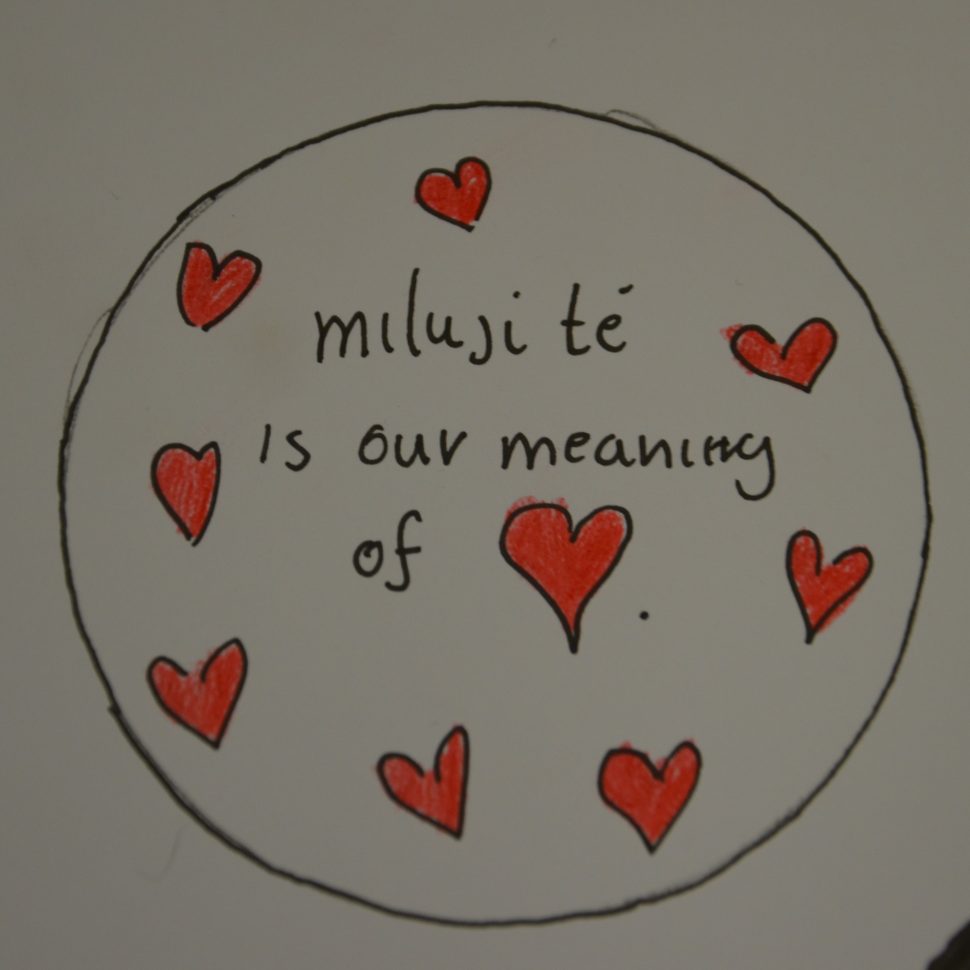 miluji té
is our meaning
of ♥.